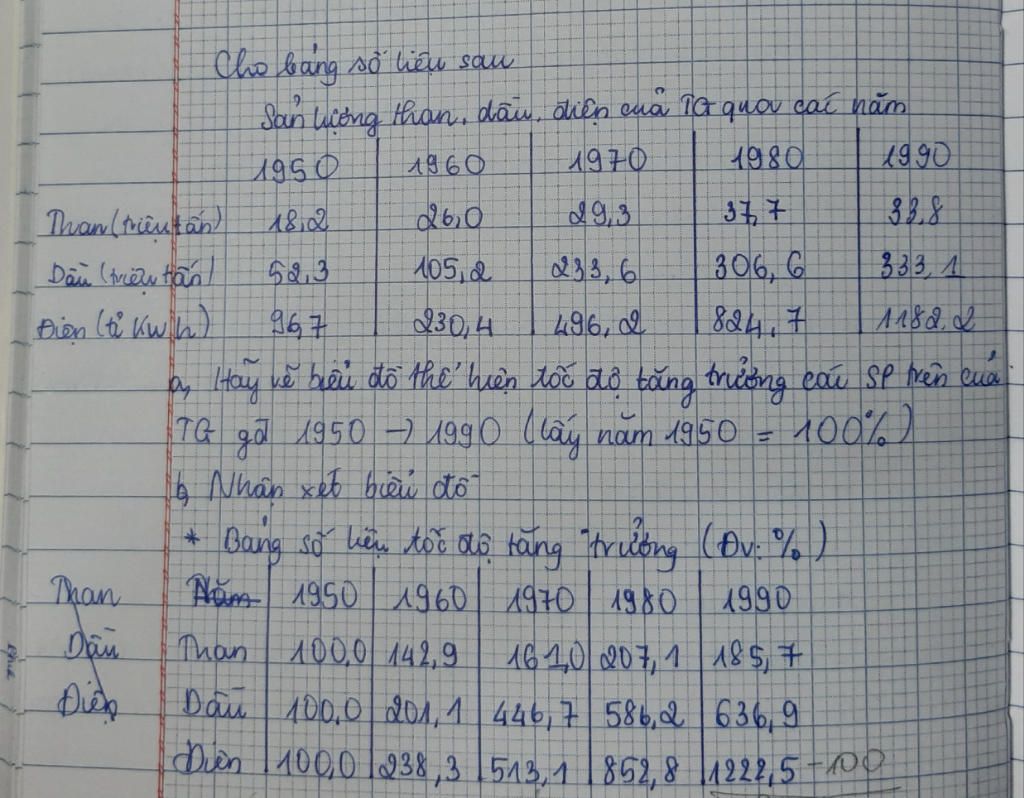 Cho bảng số liệu sau
Sản lượng than, dầu, điện của TG qua các năm
1950 1960 1970 1980 1990
Than (triệu tấn) 18,2 26,0 29,3 37,7 33,8
Dầu (triệu tấn) 52,3 105,2 233,6 306,6 333,1
Điện (tỉ Kw/h) 96,7 230,4 496,2 824,7 1182,2
a, Hãy vẽ biểu đồ thể hiện tốc độ tăng trưởng các SP trên của
TG gđ 1950 → 1990 (lấy năm 1950 = 100%)
b, Nhận xét biểu đồ
* Bảng số liệu tốc độ tăng trưởng (Đv: %)
Than Năm 1950 1960 1970 1980 1990
Dầu Than 100,0 142,9 161,0 207,1 185,7
Điện Dầu 100,0 201,1 446,7 586,2 636,9
Điện 100,0 238,3 513,1 852,8 1222,5 - 100